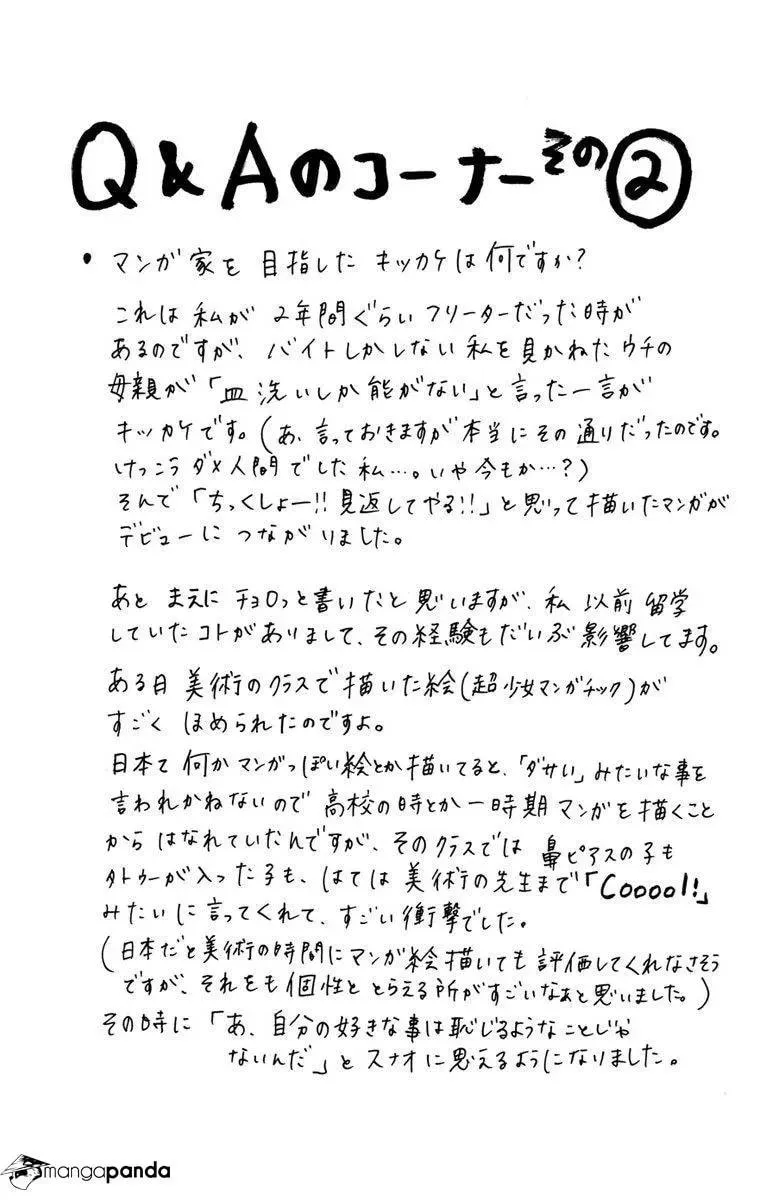 Q&Aのコーナーその②
• マンガ家を目指したキッカケは何ですか?
これは私が2年間ぐらいフリーターだった時が
あるのですが、バイトしかしない私を見かねたウチの
母親が「皿洗いしか能がない」と言った一言が
キッカケです。(あ、言っておきますが本当にその通りだったのです。
けっこうダメ人間でした私…。いや今もか…?)
そんで「ちっくしょー!!見返してやる!!」と思って描いたマンガが
デビューにつながりました。
あとまえにチョロっと書いたと思いますが、私以前留学
していたコトがありまして、その経験もだいぶ影響してます。
ある日美術のクラスで描いた絵(超少女マンガチック)が
すごくほめられたのですよ。
日本で何かマンガっぽい絵とか描いてると、「ダサい」みたいな事を
言われかねないので高校の時とか一時期マンガを描くこと
からはなれていたんですが、そのクラスでは鼻ピアスの子も
タトゥーが入った子も、はては美術の先生まで「Cooool!」
みたいに言ってくれて、すごい衝撃でした。
(日本だと美術の時間にマンガ絵描いても評価してくれなさそう
ですが、それをも個性ととらえる所がすごいなぁと思いました。)
その時に「あ、自分の好きな事は恥じるようなことじゃ
ないんだ」とスナオに思えるようになりました。
mangapanda